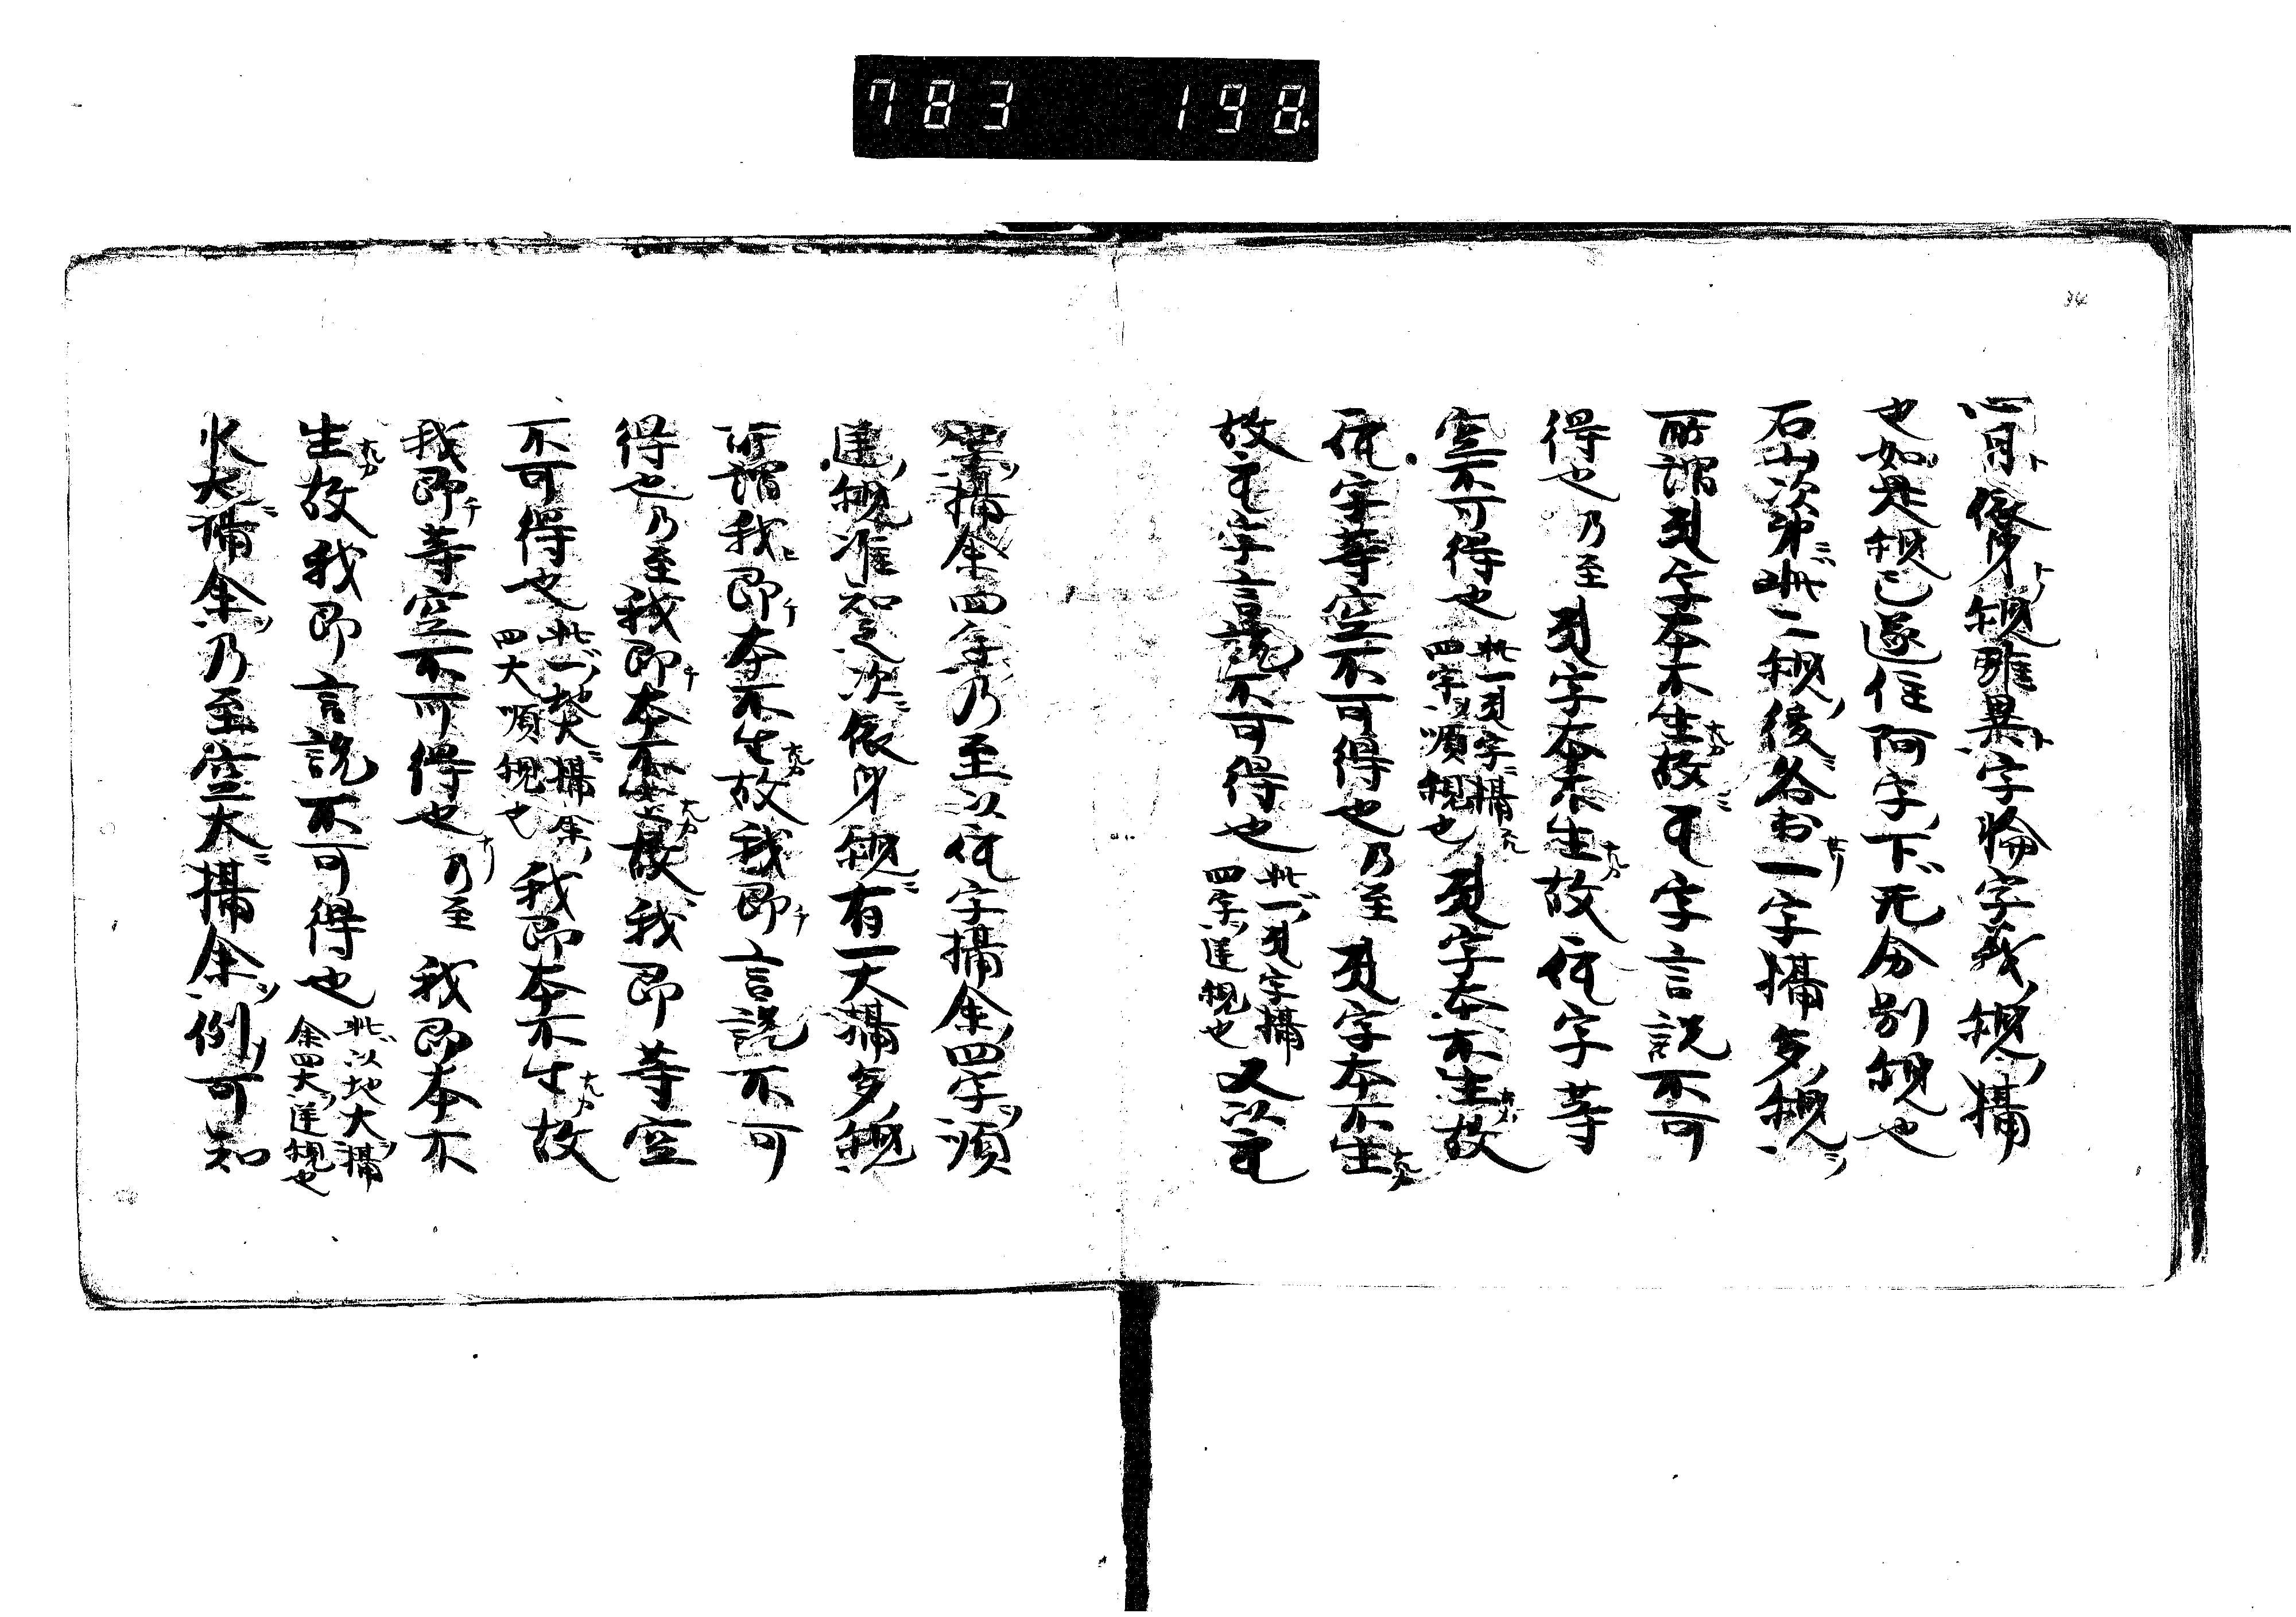 783 198.
心月ト依身ト観雖異ト字輪字義観摂
也如是観已遂住阿字下无分別観也
石山次第ニ此二観後各出一字摂多観
所謂 字本不生故 字言説不可
得也乃至 字本不生故 字等
空不可得也 此一 字摂 四字順観也 字本不生故
字等空不可得也乃至 字本不生
故 字言説不可得也 此一 字摂 四字逆観也 又以
摂余四字乃至以 字摂余四字順
逆観准知之次依身観有一大摂多観
所謂我即本不生故我即言説不可
得也乃至我即本不生故我即等空
不可得也 此一地大摂余 四大順観也 我即本不生故
我即等空不可得也乃至我即本不
生故我即言説不可得也 此以地大摂 余四大逆観也
水大摂余乃至空大摂余例可知